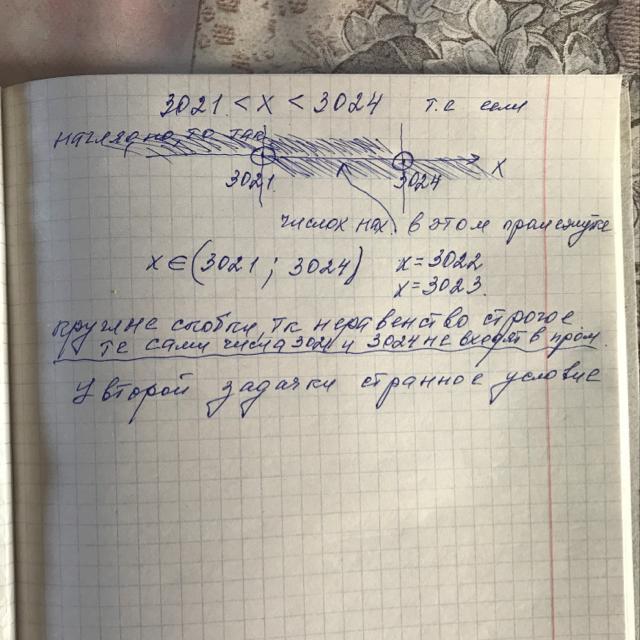 3021 < x < 3024 т.е если
наглядно, то так
x
3021 3024
число x нах. в этом промежутке
x ∈ (3021 ; 3024) x = 3022
x = 3023.
круглые скобки, тк неравенство строгое
те сами числа 3021 и 3024 не входят в пром.
У второй задачки странное условие